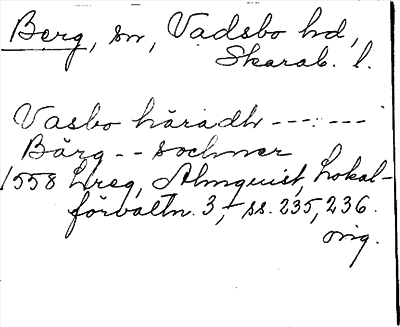 Berg, sn, Vadsbo hd,
Skarab. l.
Vasbo häradh - - - - - -
Bärg - - sochner
1558 Lreg, Almquist, Lokal-
förvaltn. 3, ss. 235, 236.
orig.